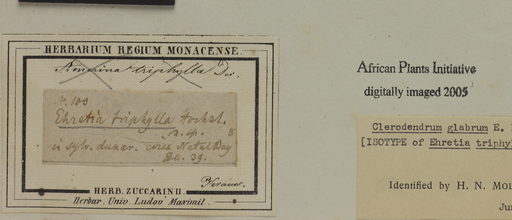 HERBARIUM REGIUM MONACENSE.
triphylla
No. 100
Ehretia triphylla Hochst.
n. sp. 8
in sylv. dunar. circa Natal Bay
39.
HERB. ZUCCARINII.
Herbar. Univ. Ludov Maximil.
African Plants Initiative
digitally imaged 2005
Clerodendrum glabrum E.
[ISOTYPE of Ehretia triphyl
Identified by H. N. MOL
Ju